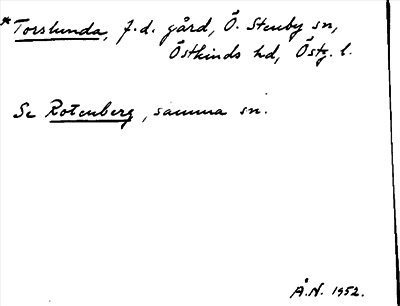 * Torslunda, f.d. gård, Ö. Stenby sn,
Östkinds hd, Östg. l.
Se Rotenberg, samma sn.
Å.N. 1952.